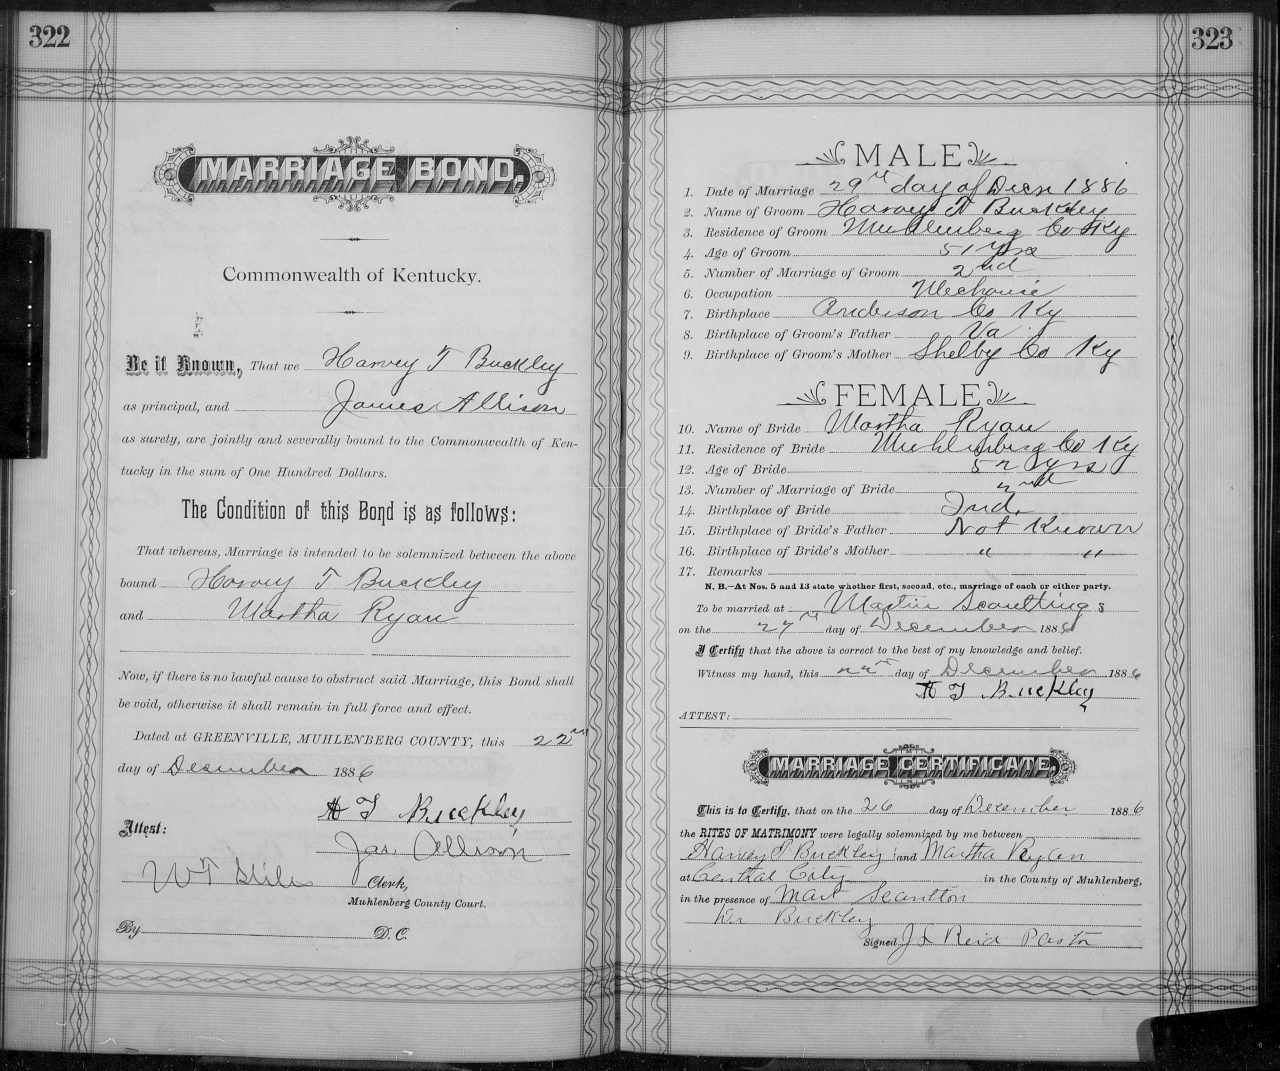 322
MARRIAGE BOND,
Commonwealth of Kentucky.
Be it Known, That we Harvey T Buckley
as principal, and James Allison
as surety, are jointly and severally bound to the Commonwealth of Ken-
tucky in the sum of One Hundred Dollars.
The Condition of this Bond is as follows:
That whereas, Marriage is intended to be solemnized between the above
bound Harvey T Buckley
and Martha Ryan
Now, if there is no lawful cause to obstruct said Marriage, this Bond shall
be void, otherwise it shall remain in full force and effect.
Dated at GREENVILLE, MUHLENBERG COUNTY, this 22nd
day of December 1886
H T Buckley
Attest:
Jas Allison
W T Stiles Clerk,
Muhlenberg County Court.
By D. C.
323
MALE
1. Date of Marriage 29th day of Decr 1886
2. Name of Groom Harvey T Buckley
3. Residence of Groom Muhlenberg Co Ky
4. Age of Groom 51 yrs
5. Number of Marriage of Groom 2nd
6. Occupation Mechanic
7. Birthplace Anderson Co Ky
8. Birthplace of Groom's Father Va
9. Birthplace of Groom's Mother Shelby Co Ky
FEMALE
10. Name of Bride Martha Ryan
11. Residence of Bride Muhlenberg Co Ky
12. Age of Bride 52 yrs
13. Number of Marriage of Bride 2nd
14. Birthplace of Bride Ind.
15. Birthplace of Bride's Father Not Known
16. Birthplace of Bride's Mother " "
17. Remarks
N. B.—At Nos. 5 and 13 state whether first, second, etc., marriage of each or either party.
To be married at Martin
on the 27th day of December 1886
I Certify that the above is correct to the best of my knowledge and belief.
Witness my hand, this 22nd day of December 1886
H T Buckley
ATTEST:
MARRIAGE CERTIFICATE.
This is to Certify, that on the 26 day of December 1886
the RITES OF MATRIMONY were legally solemnized by me between
Harvey T Buckley and Martha Ryan
at Central City in the County of Muhlenberg,
in the presence of Mart Scantton
Buckley
Signed J L Reid Pastor